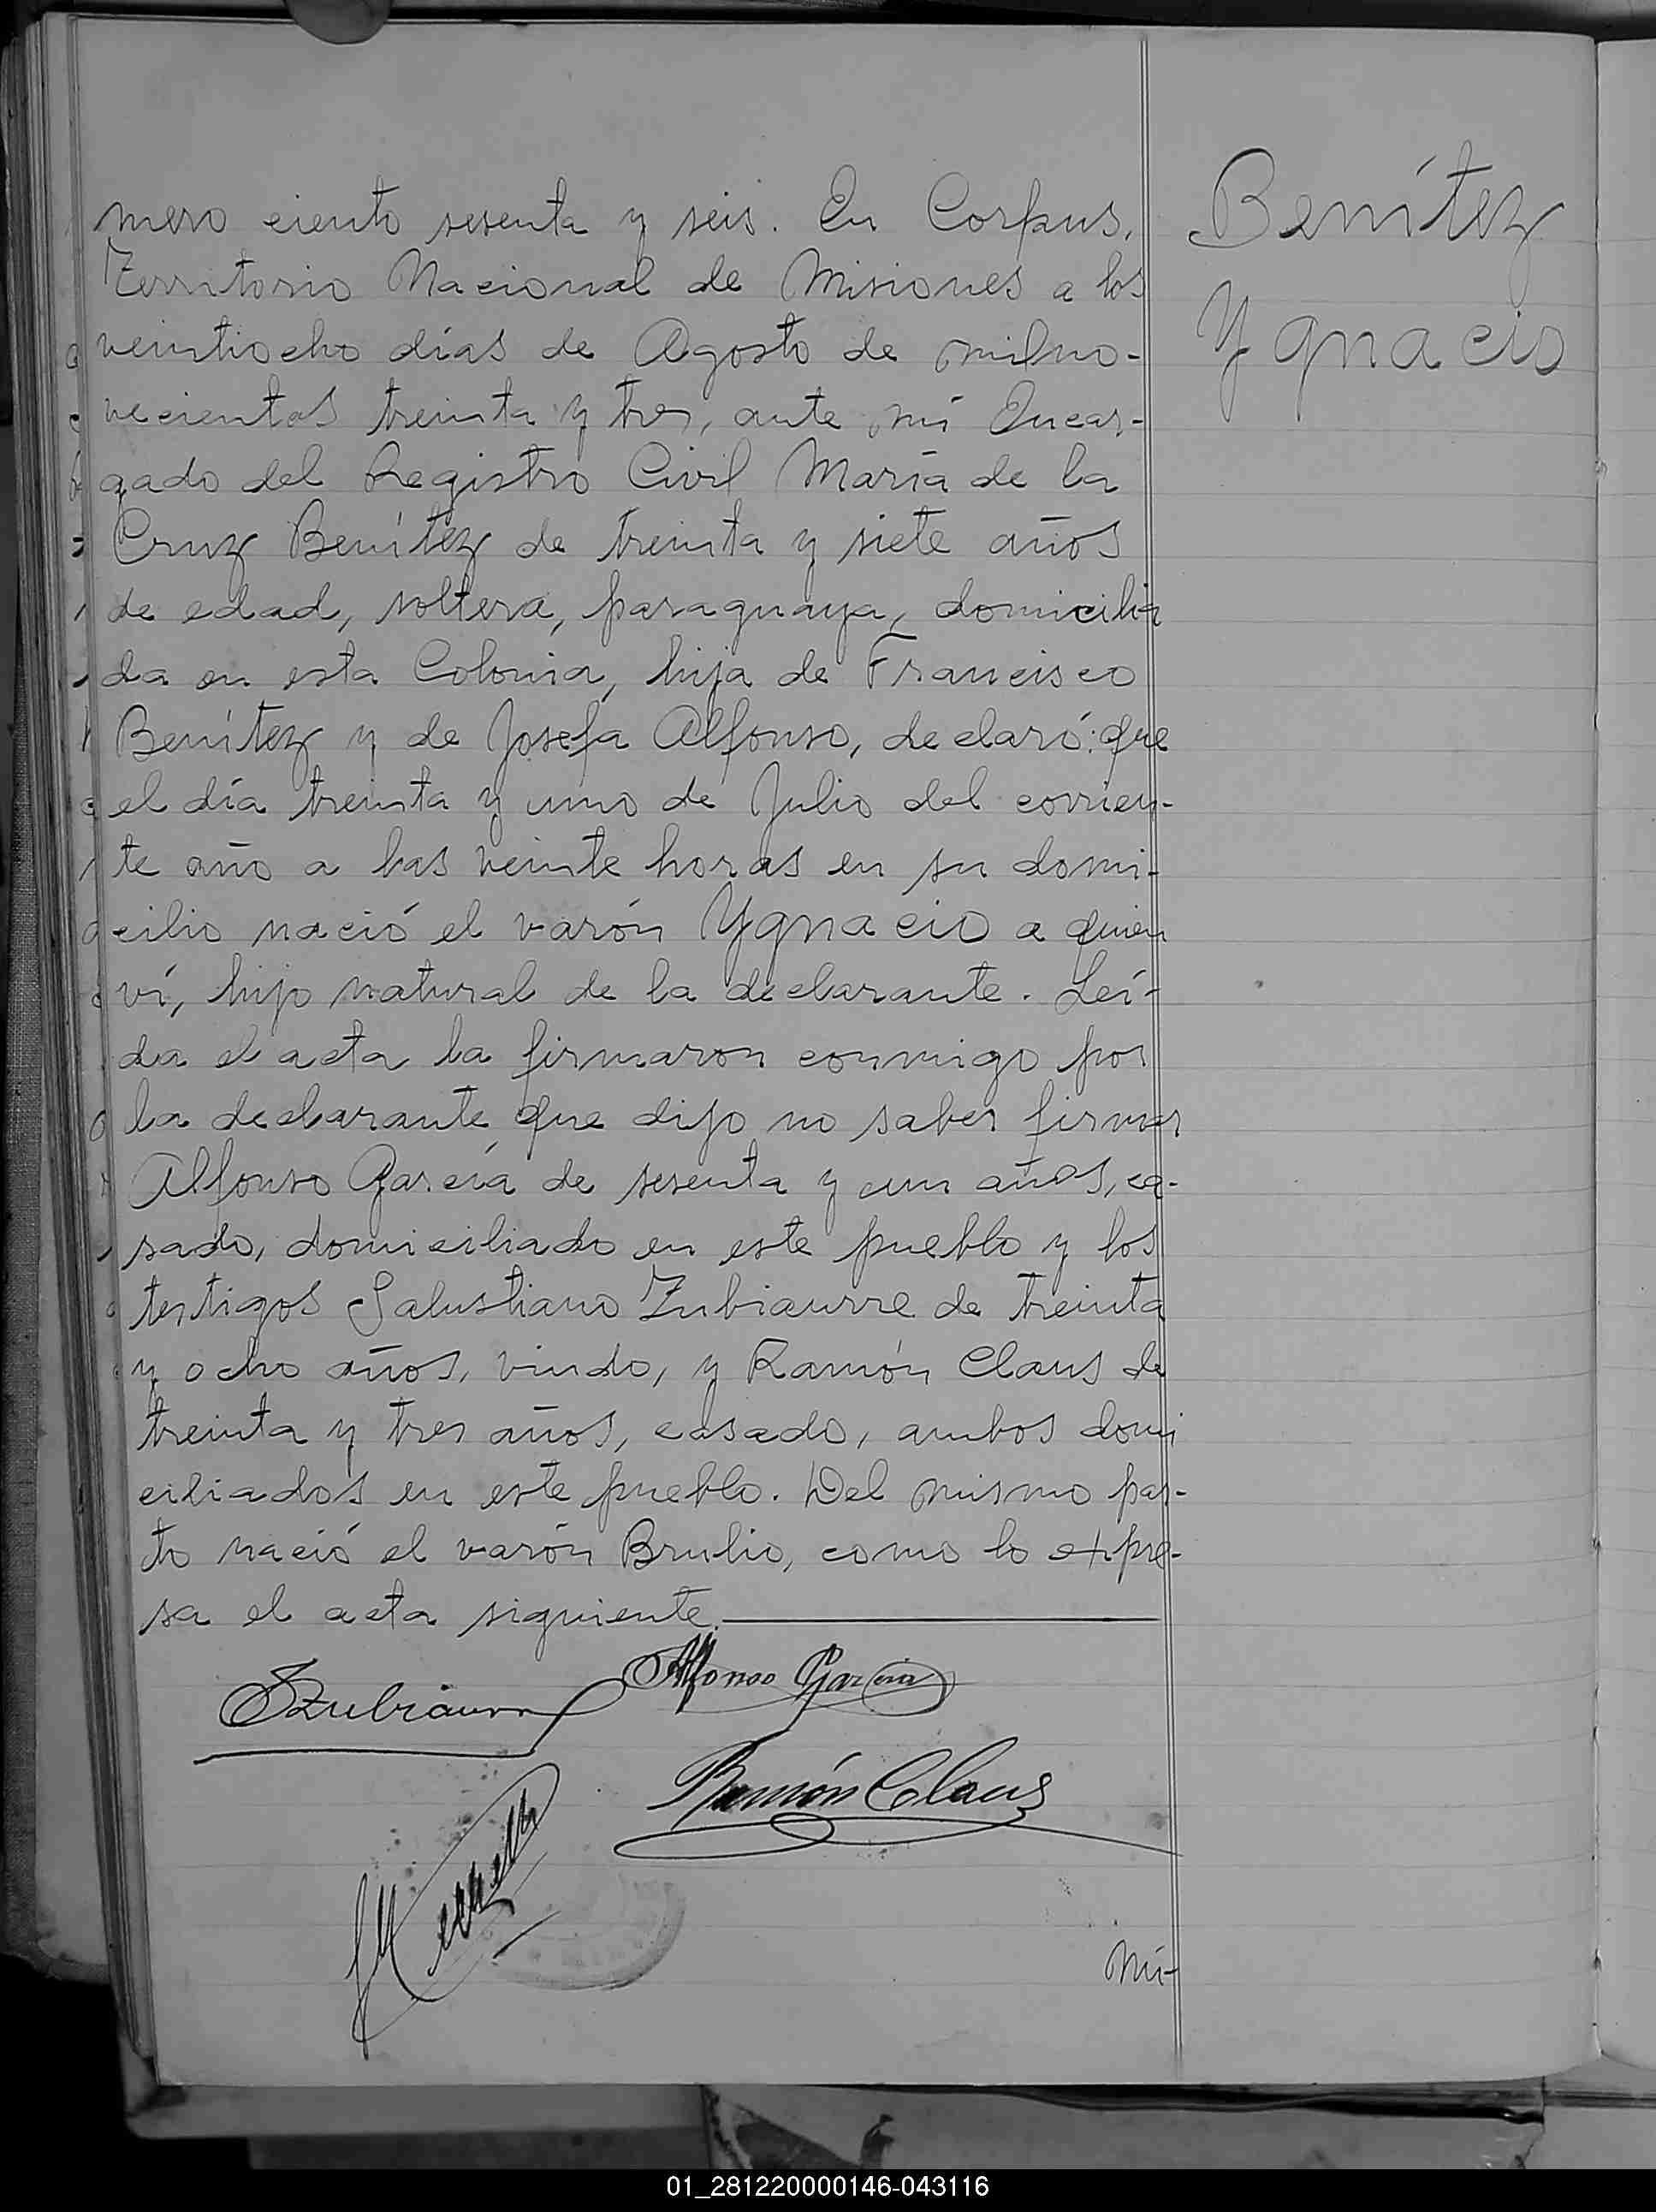 mero ciento sesenta y seis. En Corpus,
Territorio Nacional de Misiones a los
veintiocho días de Agosto de milno-
vecientos treinta y tres, ante mí Encar-
gado del Registro Civil María de la
Cruz Benítez de treinta y siete años
de edad, soltera, paraguaya, domicilia
da en esta Colonia, hija de Francisco
Benítez y de Josefa Alfonso, declaró: que
el día treinta y uno de Julio del corrien-
te año a las veinte horas en su domi-
cilio nació el varón Ygnacio a quien
ví, hijo natural de la declarante. Leí-
da el acta la firmaron conmigo por
la declarante que dijo no saber firmar
Alfonso García de sesenta y un años, ca-
sado, domiciliado en este pueblo y los
testigos Salustiano Zubiaurre de treinta
y ocho años, viudo, y Ramón Claus de
treinta y tres años, casado, ambos domi
ciliados en este pueblo. Del mismo par-
to nació el varón Brulio, como lo expre-
sa el acta siguiente.
Benítez
Ygnacio
SZubiaurre
Alfonso García
Ramón Claus
Nú-
01_281220000146-043116